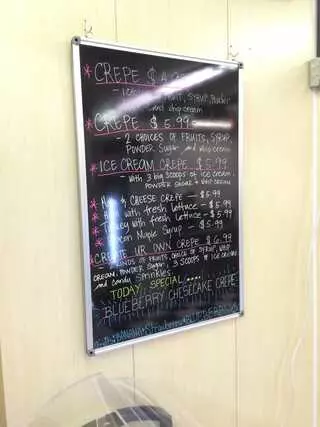 * CREPE $ 4.
FRUIT, SYRUP, Powder
and whip cream
* CREPE $ 5.99
- 2 CHOICES OF FRUITS, SYRUP,
POWDER Sugar and whip cream
* ICE CREAM CREPE $ 5.99
- with 3 big scoops of ice cream
POWDER SUGAR & WHIP CREAM
* & CHEESE CREPE - $5.99
* with fresh lettuce - $5.99
* with fresh lettuce - $5.99
* Maple Syrup - $5.99
CREATE UR OWN CREPE $ 6.99
KINDS OF FRUITS, CHOICE OF SYRUP, WHIP
CREAM, POWDER Sugar, 3 SCOOPS OF ICE CREAM
and candy sprinkles.
TODAY SPECIAL ....
BLUEBERRY CHESECAKE CREPE